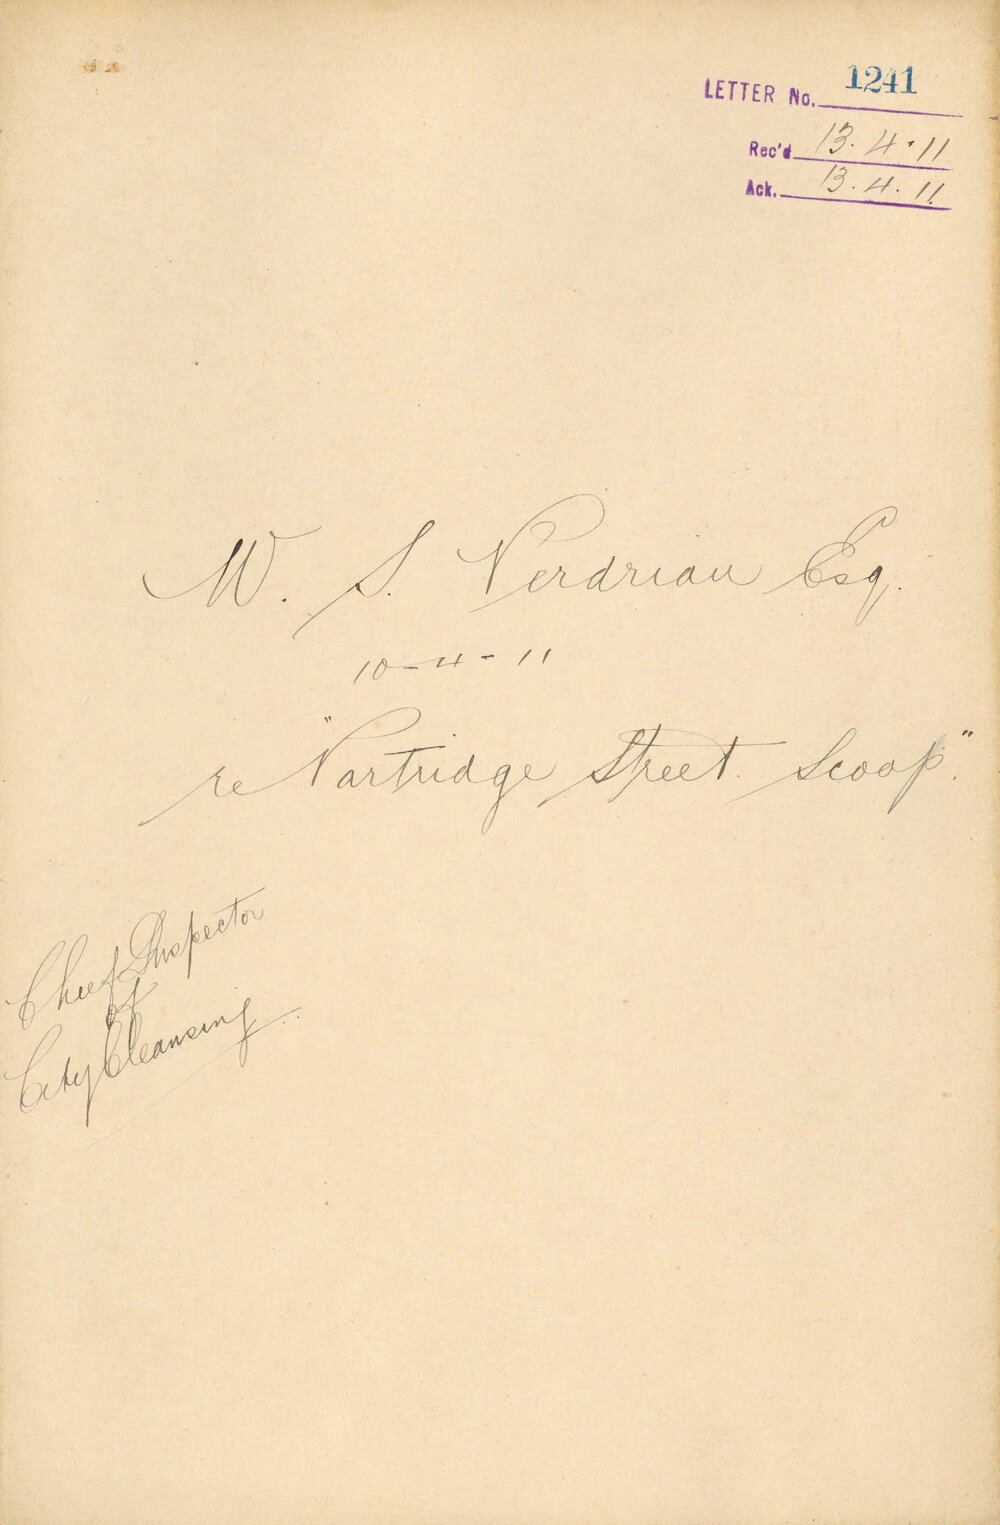 LETTER No. 1241
Rec'd 13.4.11
Ack. 13.4.11
W. S. Perdriau Esq.
10-4-11
re "Partridge Street Scoop."
Chief Inspector
of
City Cleansing